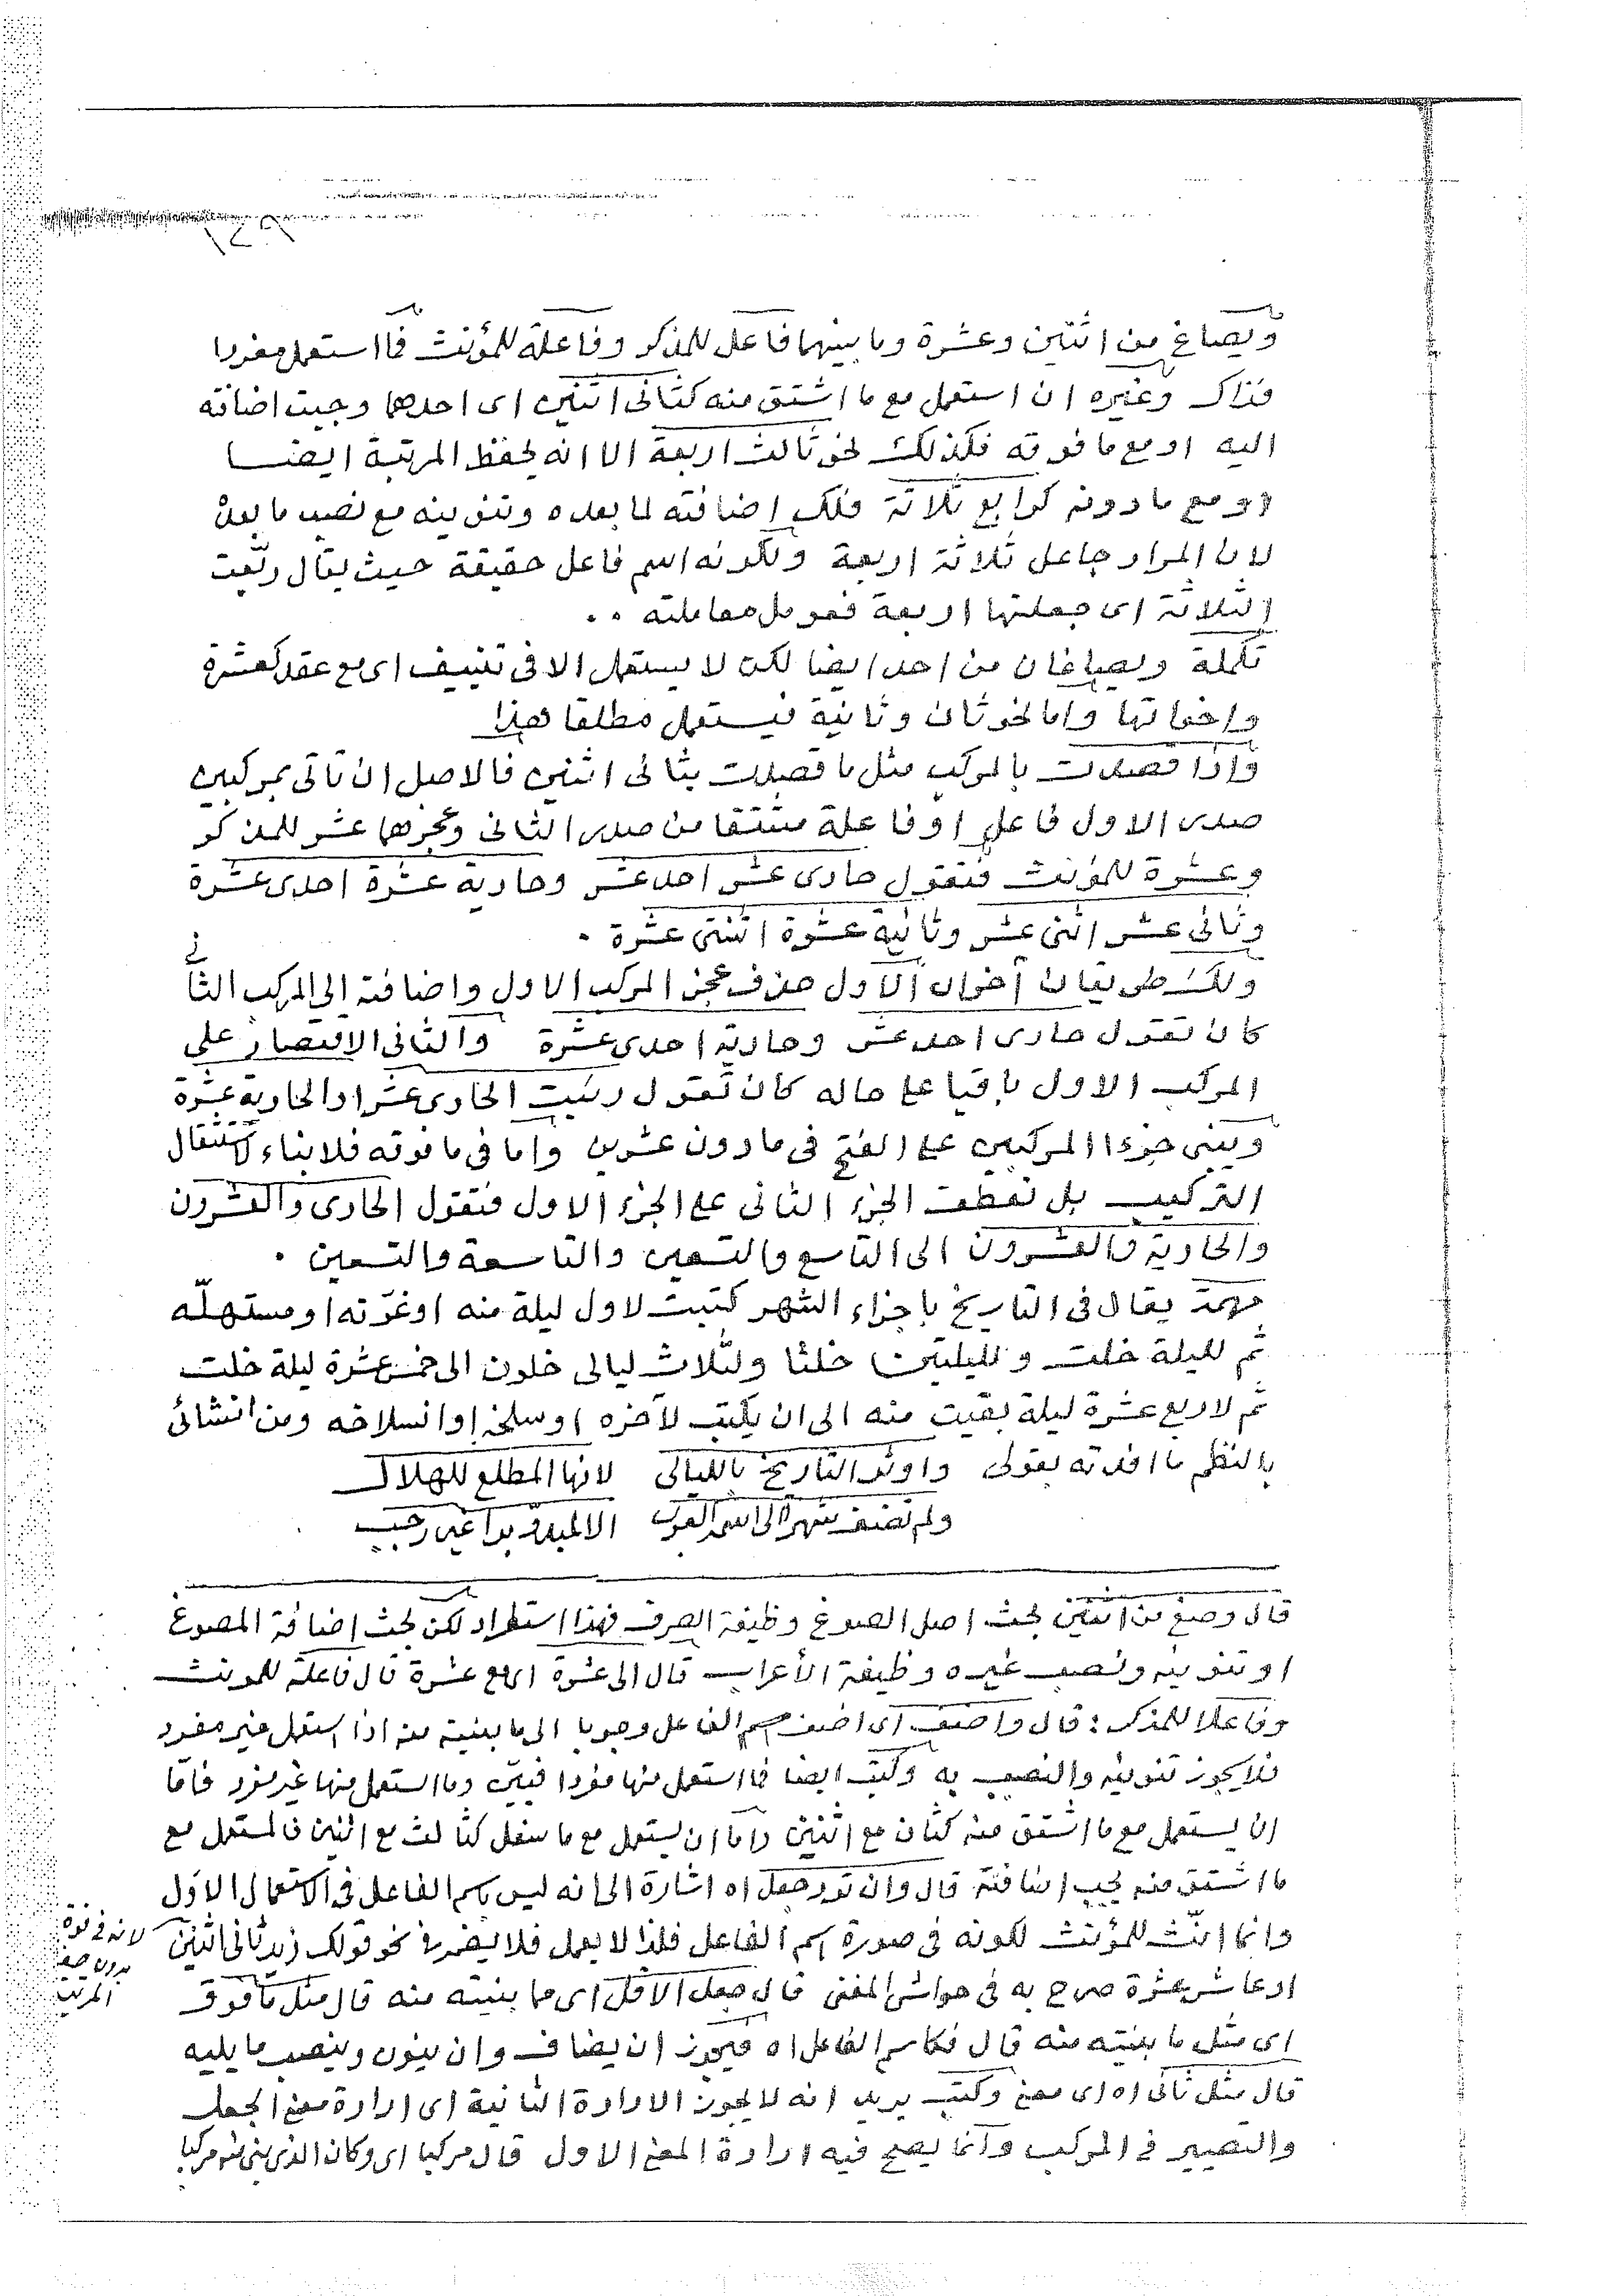 ويصاغ من اثنين وعشرة وما بينهما فاعل للمذكر وفاعلة للمؤنث فما استعمل مفردا
فذاك وغيره ان استعمل مع ما اشتق منه كثانى اثنين اى احدهما وجبت اضافته
اليه او مع ما فوقه فكذلك نحو ثالث اربعة الا انه يحفظ المرتبة ايضا
او مع ما دونه كرابع ثلاثة فلك اضافته لما بعده وتنوينه مع نصب ما بعده
لان المراد جاعل ثلاثة اربعة ولكونه اسم فاعل حقيقة حيث يقال ربّعت
الثلاثة اى جعلتها اربعة فعومل معاملته ..
تكملة ويصاغان من احد ايضا لكن لا يستعمل الا فى تنييف اى مع عقد كعشرة
واخواتها واما نحو ثان وثانية فيستعمل مطلقا هذا
واذا قصدت بالمركب مثل ما قصدت بثانى اثنين فالاصل ان تاتى بمركبين
صدر الاول فاعل او فاعلة مشتقا من صدر الثانى وعجزهما عشر للمذكر
وعشرة للمؤنث فتقول حادى عشر احد عشر وحادية عشرة احدى عشرة
وثانى عشر اثنى عشر وثانية عشرة اثنتى عشرة .
ولك طريقان آخران الاول حذف عجز المركب الاول واضافته الى المركب الثانى
كان تقول حادى احد عشر وحادية احدى عشرة والثانى الاقتصار على
المركب الاول باقيا على حاله كان تقول رئيت الحادى عشر او الحادية عشرة
ويبنى جزءا المركبين على الفتح فى ما دون عشرين واما فى ما فوقه فلا بناء لاستثقال
التركيب بل تعطف الجزء الثانى على الجزء الاول فتقول الحادى والعشرون
والحادية والعشرون الى التاسع والتسعين والتاسعة والتسعين .
مهمة يقال فى التاريخ باجزاء الشهر كتبت لاول ليلة منه او غرّته او مستهلّه
ثم لليلة خلت ولليلتين خلتا ولثلاث ليالى خلون الى خمس عشرة ليلة خلت
ثم لاربع عشرة ليلة بقيت منه الى ان يكتب لآخره او سلخه او انسلاخه ومن انشائى
بالنظم ما افدته بقولى واوثر التاريخ بالليالى لانها المطلع للهلال
ولم تضف شهرا الى اسمه العرب الا لمبدو برا غير رجب
قال وصغ من اثنين بحث اصل الصوغ وظيفة الصرف فهذا استطراد لكن بحث اضافة المصوغ
او تنوينه ونصب غيره وظيفة الأعراب قال الى عشرة اى مع عشرة قال فاعلة للمونث
وفاعلا للمذكر : قال واضف اى اضف اسم الفاعل وجوبا الى ما بنيته منه اذا استعمل غير مفرد
فلا يجوز تنوينه والنصب به وكتب ايضا فما استعمل منها مفردا فبيّن وما استعمل منها غير مفرد فامّا
ان يستعمل مع ما اشتق منه كثان مع اثنين واما ان يستعمل مع ما سفل كثالث مع اثنين فالمستعمل مع
ما اشتق منه يجب اضافته قال وان ترد جعل اه اشارة الى انه ليس باسم الفاعل فى الاستعمال الاول
وانما انّث للمؤنث لكونه فى صورة اسم الفاعل فلذا لا يعمل فلا يضمر فى نحو قولك زيد ثانى اثنين
لانه فى قوة
المرتب
او عاشر عشرة صرح به فى حواشى المغنى قال جعل الاقل اى مما بنيته منه قال مثل ما فوق
اى مثل ما بنيته منه قال فكاسم الفاعل اه فيجوز ان يضاف وان ينون وينصب ما يليه
قال مثل ثانى اه اى معنى وكتب يريد انه لا يجوز الارادة الثانية اى ارادة معنى الجعل
والتصيير فى المركب وانما يصح فيه ارادة المعنى الاول قال مركبا اى وكان الذى بنى منه مركبا